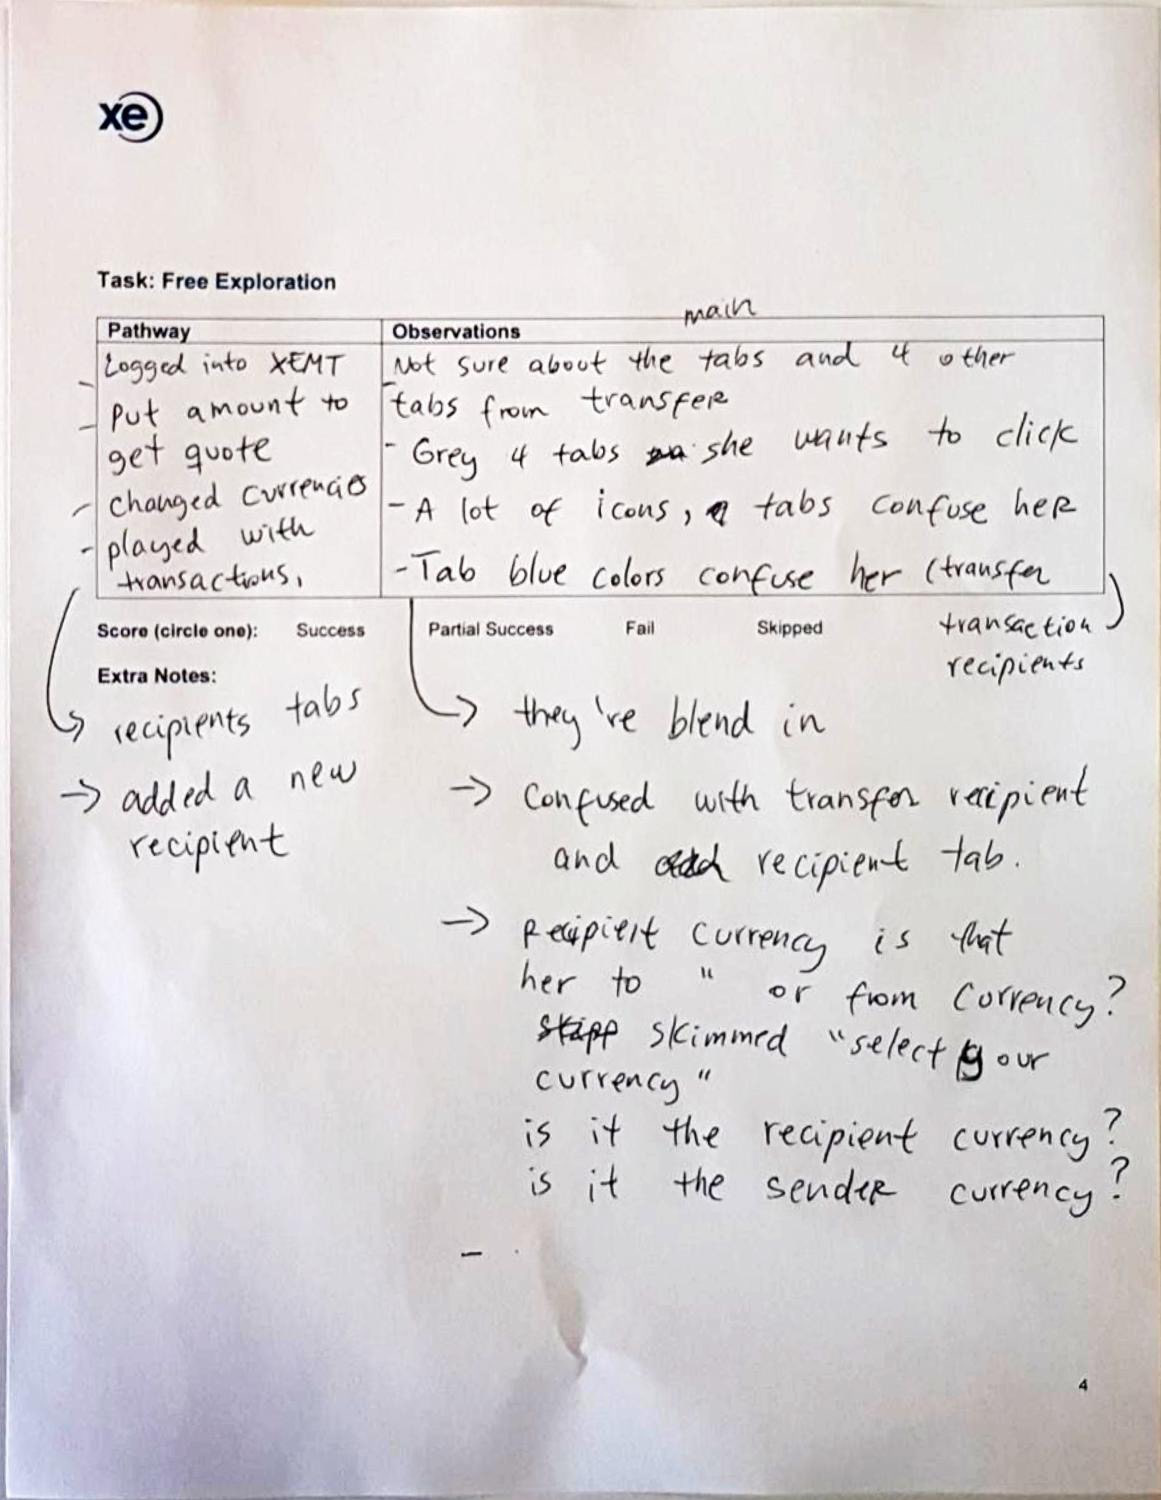 xe
Task: Free Exploration
main
Pathway
Observations
Logged into XEMT
- Put amount to
get quote
- changed currencies
- played with
transactions,
Not sure about the tabs and 4 other
tabs from transfer
- Grey 4 tabs she wants to click
- A lot of icons, tabs confuse her
- Tab blue colors confuse her (transfer
transaction )
recipients
Score (circle one): Success Partial Success Fail Skipped
Extra Notes:
→ recipients tabs
→ added a new
recipient
→ they're blend in
→ Confused with transfer recipient
and add recipient tab.
→ Recipient currency is that
her to " or from currency?
skipp skimmed "select your
currency"
is it the recipient currency?
is it the sender currency?
-
4